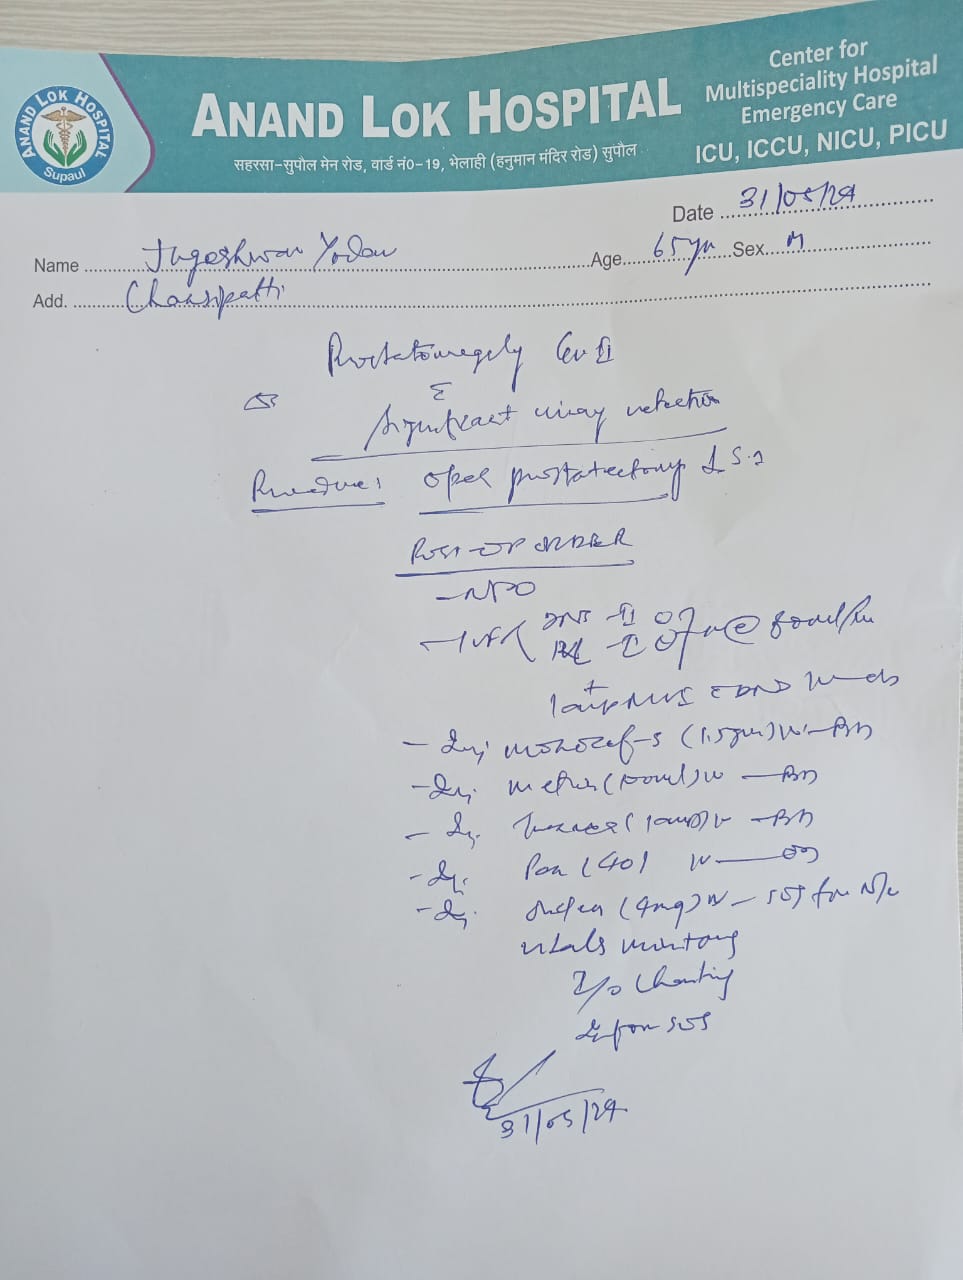 ANAND LOK HOSPITAL
Supaul
ANAND LOK HOSPITAL
सहरसा-सुपौल मेन रोड, वार्ड नं0-19, भेलाही (हनुमान मंदिर रोड) सुपौल
Center for
Multispeciality Hospital
Emergency Care
ICU, ICCU, NICU, PICU
Date 31/05/24
Name Jugeshwar Yadav Age 65yr Sex M
Add.
Prostatomegaly Gr II
Significant urinary retention
Procedure: open prostatectomy
POST-OP ORDER
- NPO
- IVF DNS - II
RL - II
- Inj. monocef-s (1.5gm) IV - BD
- Inj. metro (100ml) IV - BD
- Inj. IV - BD
- Inj. Pan (40) IV - OD
- Inj. (4mg) IV - SOS for N/V
vitals monitoring
I/O Charting
Inform SOS
31/05/24